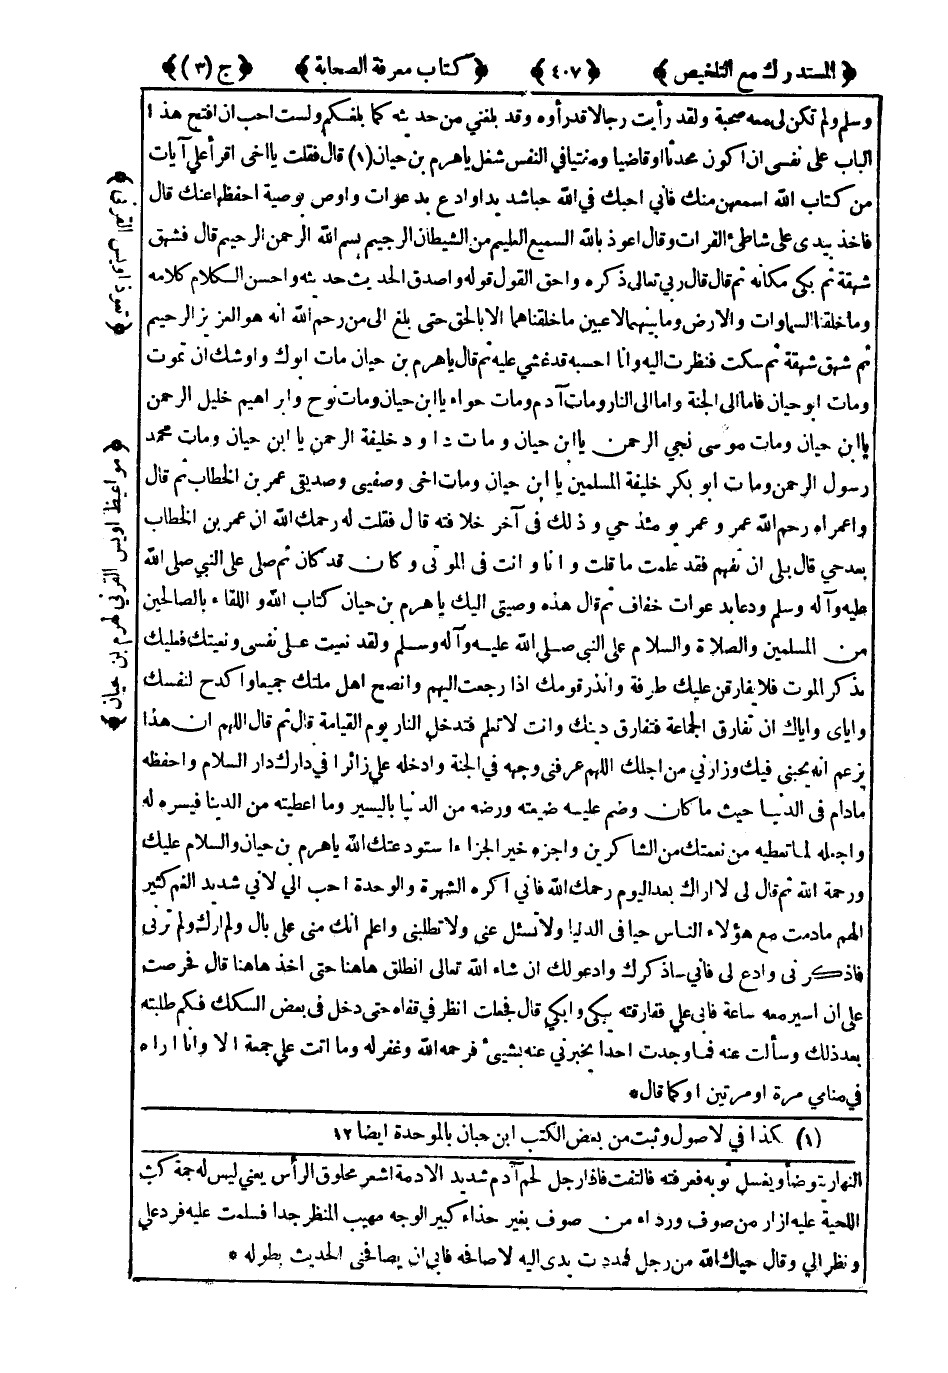 ﴿ المستدرك مع التلخيص ﴾ ﴿ ٤٠٧ ﴾ ﴿ كتاب معرفة الصحابة ﴾ ﴿ ج (٣) ﴾
وسلم ولم تكن لى معه صحبة ولقد رأيت رجالا قد رأوه وقد بلغني من حديثه كما بلغكم ولست احب ان افتح هذا
الباب على نفسى ان اكون محدثا او قاضيا ومفتيا في النفس شغل ياهرم بن حيان (١) قال فقلت يا اخى اقرأ علي آيات
من كتاب الله اسمعهن منك فاني احبك في الله حبا شديدا وادع بدعوات واوص بوصية احفظها عنك قال
فاخذ بيدى على شاطئ الفرات وقال اعوذ بالله السميع العليم من الشيطان الرجيم بسم الله الرحمن الرحيم قال فشهق
شهقة ثم بكى مكانه ثم قال قال ربي تعالى ذكره واحق القول قوله واصدق الحديث حديثه واحسن الكلام كلامه
وما خلقنا السماوات والارض وما بينهما لاعبين ما خلقناهما الا بالحق حتى بلغ الى من رحم الله انه هو العزيز الرحيم
ثم شهق شهقة ثم سكت فنظرت اليه وانا احسبه قد غشي عليه ثم قال ياهرم بن حيان مات ابوك واوشك ان تموت
ومات ابو حيان فاما الى الجنة واما الى النار ومات آدم ومات حواء يا ابن حيان ومات نوح وابراهيم خليل الرحمن
يا ابن حيان ومات موسى نجي الرحمن يا ابن حيان ومات داود خليفة الرحمن يا ابن حيان ومات محمد
رسول الرحمن ومات ابو بكر خليفة المسلمين يا ابن حيان ومات اخى وصفيي وصديقى عمر بن الخطاب ثم قال
واعمراه رحم الله عمر وعمر يومئذ حي وذلك في آخر خلافته قال فقلت له رحمك الله ان عمر بن الخطاب
بعد حي قال بلى ان تفهم فقد علمت ما قلت وانا وانت في الموتى وكان قد كان ثم صلى على النبي صلى الله
عليه وآله وسلم ودعا بدعوات خفاف ثم قال هذه وصيتى اليك ياهرم بن حيان كتاب الله واللقاء بالصالحين
من المسلمين والصلاة والسلام على النبى صلى الله عليه وآله وسلم ولقد نعيت على نفسى ونعيتك فعليك
بذكر الموت فلا يفارقن عليك طرفة وانذر قومك اذا رجعت اليهم وانصح اهل ملتك جميعا واكدح لنفسك
واياى واياك ان تفارق الجماعة فتفارق دينك وانت لا تعلم فتدخل النار يوم القيامة قال ثم قال اللهم ان هذا
يزعم انه يحبنى فيك وزارني من اجلك اللهم عرفنى وجهه في الجنة وادخله علي زائرا في دارك دار السلام واحفظه
مادام فى الدنيا حيث ما كان وضم عليه ضيعته ورضه من الدنيا باليسير وما اعطيته من الدينا فيسره له
واجعله لما تعطيه من نعمتك من الشاكرين واجزه خير الجزاء استودعتك الله ياهرم بن حيان والسلام عليك
ورحمة الله ثم قال لى لا اراك بعد اليوم رحمك الله فاني اكره الشهرة والوحدة احب الي لاني شديد الغم كثير
الهم مادمت مع هؤلاء الناس حيا فى الدنيا ولا تسئل عنى ولا تطلبنى واعلم انك منى على بال ولم ارك ولم ترنى
فاذكرنى وادع لى فانى ساذكرك وادعو لك ان شاء الله تعالى انطلق هاهنا حتى اخذ هاهنا قال فحرصت
على ان اسير معه ساعة فابى علي ففارقته يبكى وابكي قال فجعلت انظر في قفاه حتى دخل فى بعض السكك فكم طلبته
بعد ذلك وسألت عنه فما وجدت احدا يخبرني عنه بشيئ فرحمه الله وغفر له وما اتت علي جمعة الا وانا اراه
في منامي مرة او مرتين او كما قال*
(١) كذا في لاصول وثبت من بعض الكتب ابن حبان بالموحدة ايضا ١٢
النهار يتوضأ ويغسل ثوبه فعرفته فالتفت فاذا رجل لحم آدم شديد الادمة اشعر محلوق الرأس يعني ليس له جمة كث
اللحية عليه ازار من صوف ورداء من صوف بغير حذاء كبير الوجه مهيب المنظر جدا فسلمت عليه فرد علي
ونظر الي وقال حياك الله من رجل فمددت يدى اليه لاصافحه فابى ان يصافحنى الحديث بطوله *
﴿ تعوذ اويس القرني ﴾
﴿ مواعيظ اويس القرني لهرم بن حيان ﴾